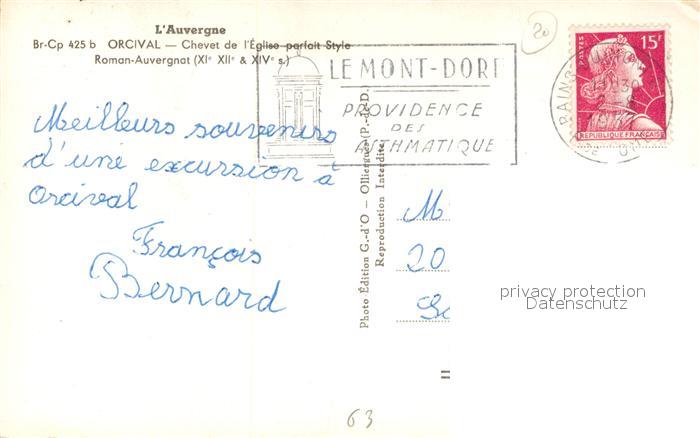 L'Auvergne
Br-Cp 425 b ORCIVAL — Chevet de l'Église parfait Style
Roman-Auvergnat (XIe XIIe & XIVe s.)
20
LE MONT-DORE
PROVIDENCE
DES
ASTHMATIQUE
POSTES
15F
REPUBLIQUE FRANÇAISE
Meilleurs souvenirs
d'une excursion à
Orcival
François
Bernard
Photo-Édition G.-d'O — Olliergues (P.-de-D.)
Reproduction Interdite
M
20
privacy protection
Datenschutz
63